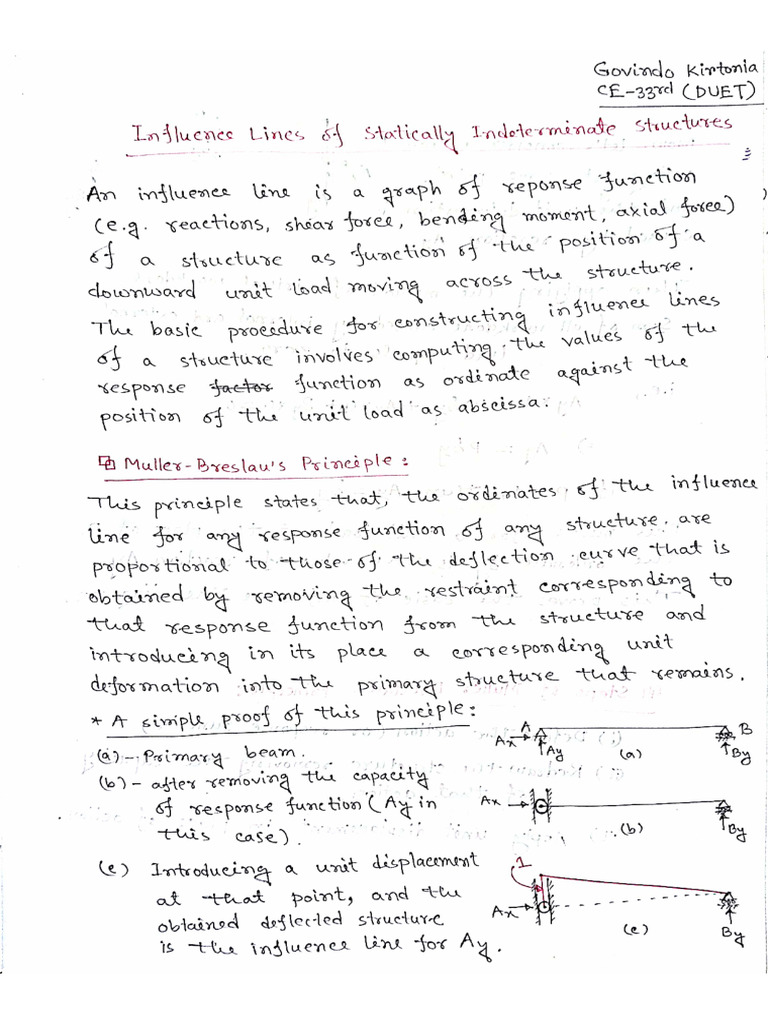 Govindo Kirtonia
CE-33rd (DUET)
Influence Lines of Statically Indeterminate Structures
An influence line is a graph of reponse function
(e.g. reactions, shear force, bending moment, axial force)
of a structure as function of the position of a
downward unit load moving across the structure.
The basic procedure for constructing influence lines
of a structure involves computing the values of the
response factor function as ordinate against the
position of the unit load as abscissa.
Muller-Breslau's Principle:
This principle states that, the ordinates of the influence
line for any response function of any structure are
proportional to those of the deflection curve that is
obtained by removing the restraint corresponding to
that response function from the structure and
introducing in its place a corresponding unit
deformation into the primary structure that remains.
* A simple proof of this principle:
(a) - Primary beam.
(b) - after removing the capacity
of response function (Ay in
this case).
(c) Introducing a unit displacement
at that point, and the
obtained deflected structure
is the influence line for Ay.
A B
Ax Ay (a) By
Ax (b) By
1
Ax (c) By